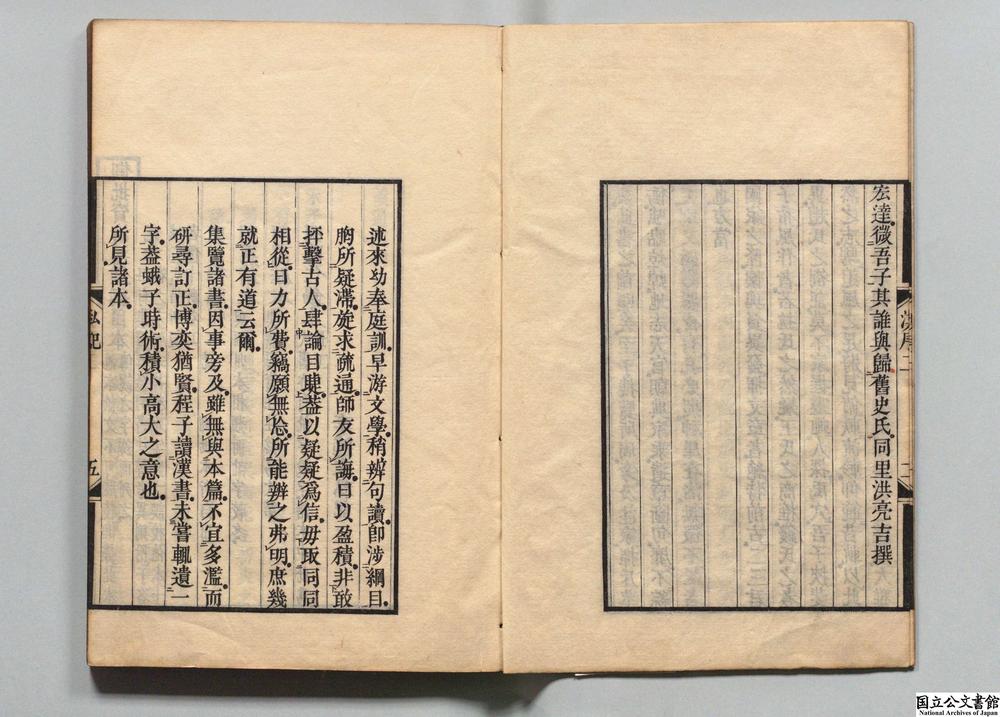 宏達微吾子其誰與歸舊史氏同里洪亮吉撰
漢序二
述來幼奉庭訓早游文學稍辨句讀卽涉綱目
胸所疑滯旋求疏通師友所誨日以盈積非敢
抨擊古人肆論目睫葢以疑疑爲信毋取同同
相從日力所費竊願無忝所能辨之弗明庶幾
就正有道云爾
集覽諸書因事旁及雖無與本篇不宜多濫而
研尋訂正博奕猶賢程子讀漢書未嘗輒遺一
字葢蛾子時術積小高大之意也
所見諸本
五
国立公文書館
National Archives of Japan